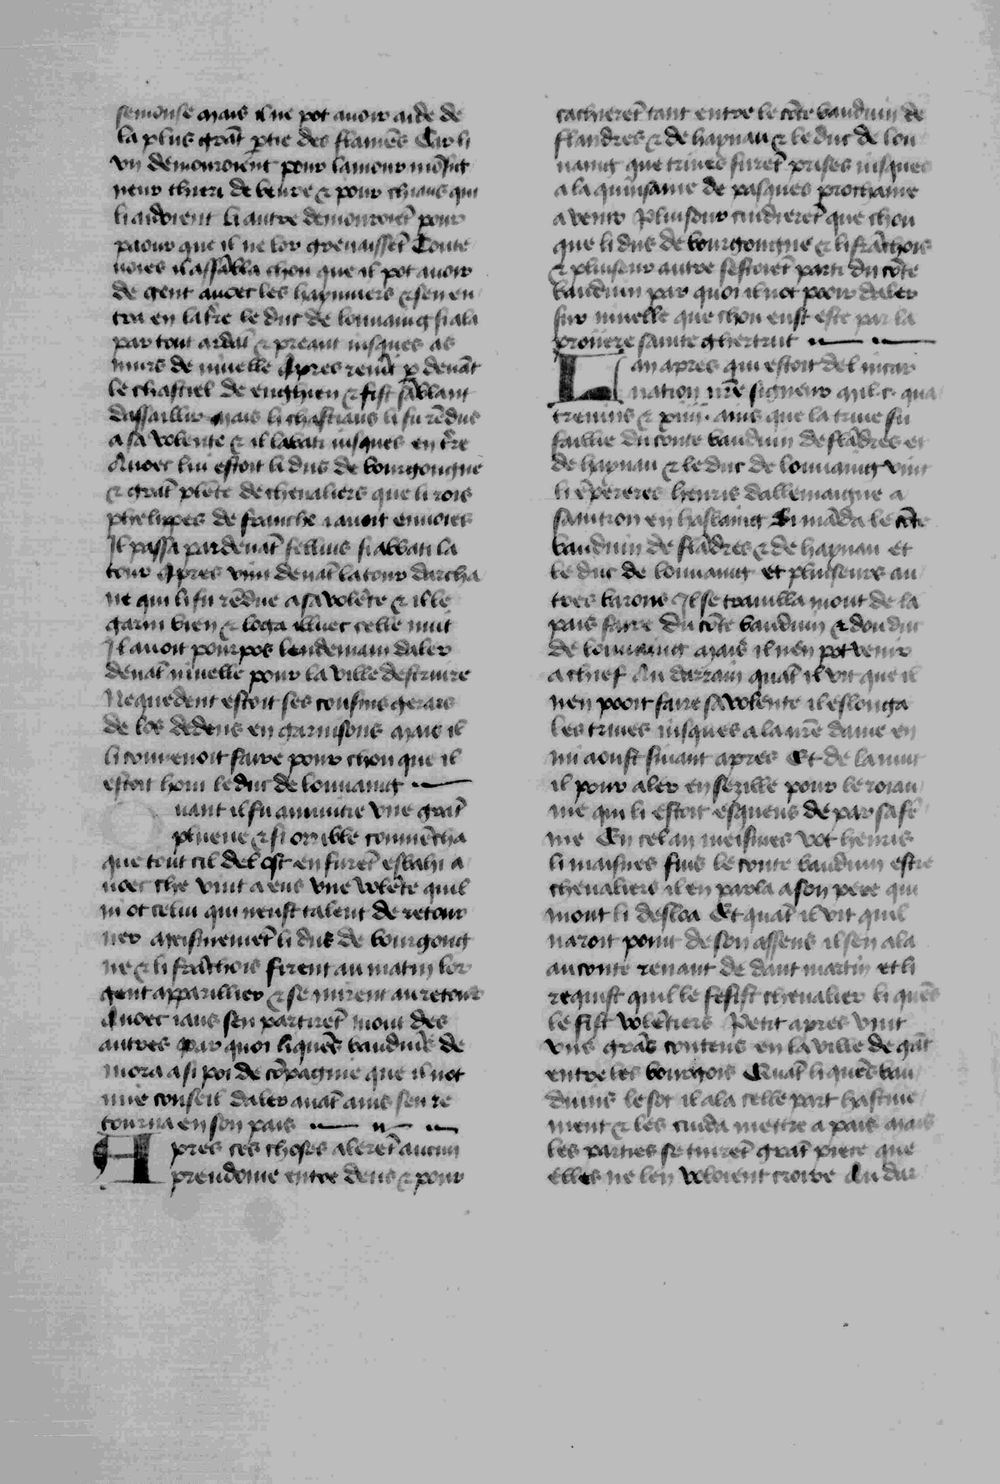 semonse mais il ne pot auoir aide de
la plus grāt ptie des flamēs Car li
vn demouroient pour lamour mōsig
neur thieri de beure & pour chiaus qui
li aidoient li autre demouroiēt pour
paour que il ne lor greuaissēt Toute
uoies il assābla chou que il pot auoir
de gent auoec les haynuiers & sen en
tra en la t̄re le duc de louuaing si ala
par tout ardāt & preant iusques as
murs de niuelle Apres reuīt p deuāt
le chastiel de enghien & fist sāblant
dassaillir mais li chastiaus li fu rēdus
a sa volente & il labati iusques en t̄re
Auoec lui estoit li dus de bourgougne
& grāt plēte de cheualiers que li rois
phelippes de franche i auoit enuoies
Il passa par deuāt si abati la
tour Apres vint deuāt la tour darcha
ne qui li fu rēdue a sa volēte & il le
garni bien & loga illuec celle nuit
Il auoit pourpos lendemain daler
deuāt niuelle pour la ville destruire
Nequedent estoit ses cousins gerars
de los dedens en garnisons mais il
li conuenoit faire pour chou que il
estoit hom le duc de louuaing
uant il fu anuitie vne grāt
plueue & si orrible commēcha
que tout cil del ost en furēt esbahi a
uoec che vint a eus vne volēte quil
ni ot celui qui neust talent de retour
ner meismemēt li dus de bourgoug
ne & li frāchois firent au matin lor
gent apparillier & se mirent au retour
Auoec iaus sen partirēt mout des
autres par quoi li quēs bauduīs de
mora a si poi de cōpagnie que il not
mie conseil daler auāt ains sen re
tourna en son pais
Apres ces choses alerēt aucun
preudome entre deus & pour
cachierēt tant entre le cōte bauduin de
flandres & de haynau & le duc de lou
uaing que triues furēt prises iusques
a la quinsaine de pasques prochaine
a venir Pluisour cuidierēt que chou
que li dus de bourgougne & li frāchois
& pluiseur autre sestoiēt parti du cōte
bauduin par quoi il not pooir daler
sur niuelle que chou eust este par la
proiiere sainte ghertrut
Lan apres qui estoit del incar
nation n̄re signeur M.C. qua
trevins & XIIII. ains que la triue fu
faillie du conte bauduin de flādres et
de haynau & le duc de louuaing vint
li ēpereres henris dallemaigne a
saintron en hasbaing Si māda le cōte
bauduin de flādres & de haynau et
le duc de louuaing et pluiseurs au
tres barons Il se trauilla mout de la
pais faire du cōte bauduin & dou duc
de louuaing mais il nen pot venir
a chief Au darrain quāt il vit que il
nen pooit faire sa volente il eslonga
les triues iusques a la n̄re dame en
mi aoust siuant apres Et de la mut
il pour aler en sezille pour le roiau
me qui li estoit esqueus de par sa fē
me En cel an meismes vot henris
li maisnes fius le conte bauduin estre
cheualiers il en parla a son pere qui
mout li desloa Et quāt il vit quil
naroit point de son assens il sen ala
au conte renaut de dant martin et li
requist quil le fesist cheualier li quēs
le fist volētiers Petit apres vint
vns grās contens en la ville de gāt
entre les bourgois Quāt li quēs bau
duins le sot il ala celle part hastiue
ment & les cuida mettre a pais mais
les parties se tinrēt grāt piece que
elles ne len voloient croire Au dar